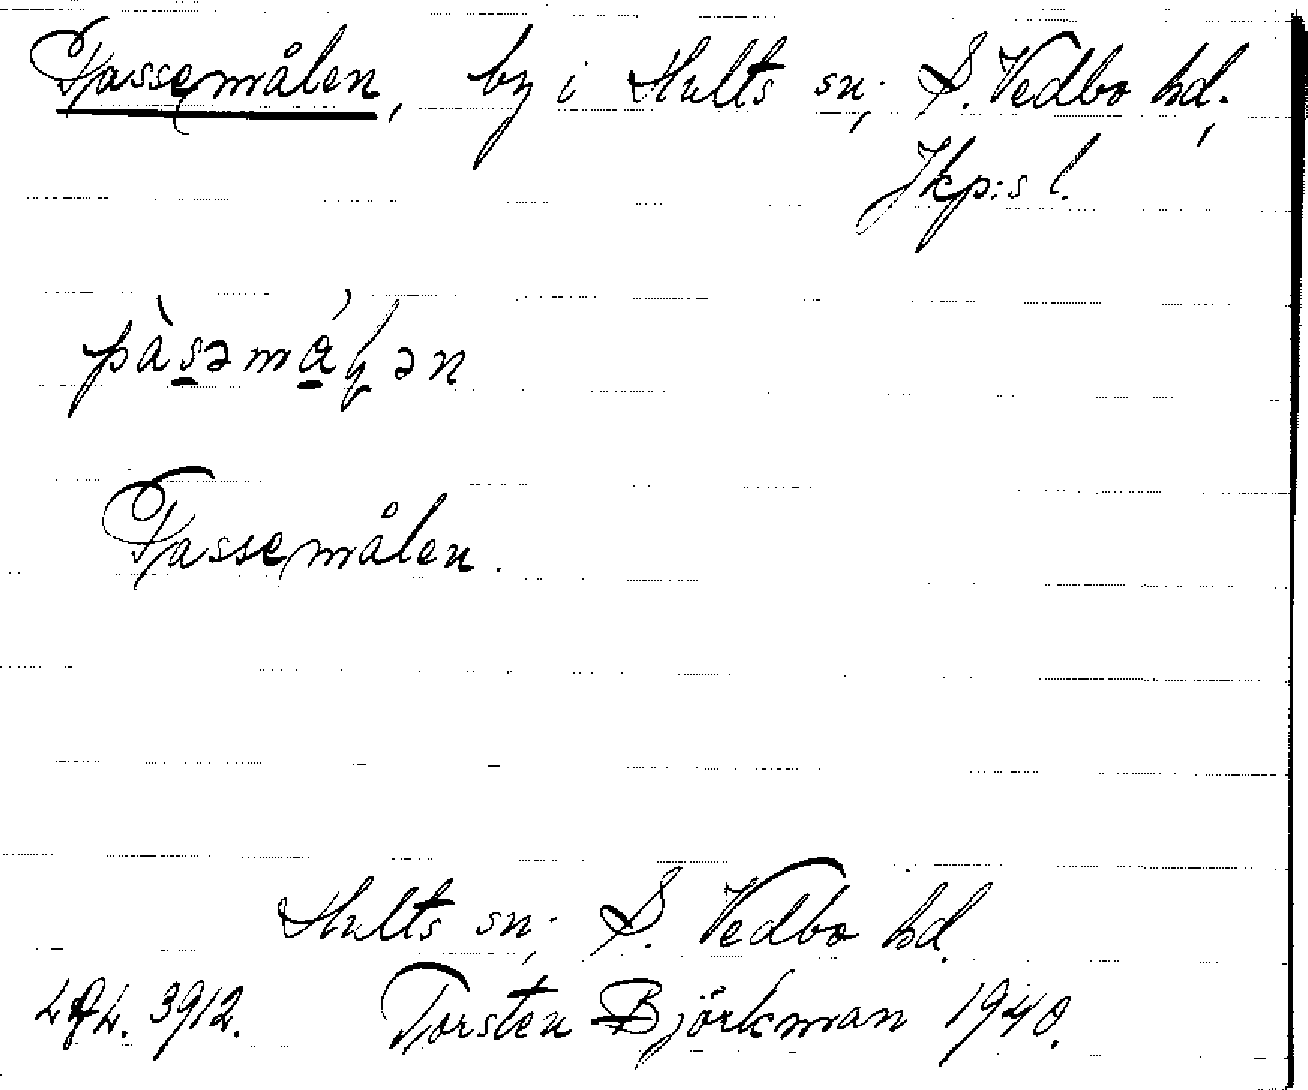 Passemålen, by i Hults sn, S. Vedbo hd,
Jkp:s l.
pàsəmá̊ɭən
Passemålen.
Hults sn, S. Vedbo hd.
3912. Torsten Björkman 1940.